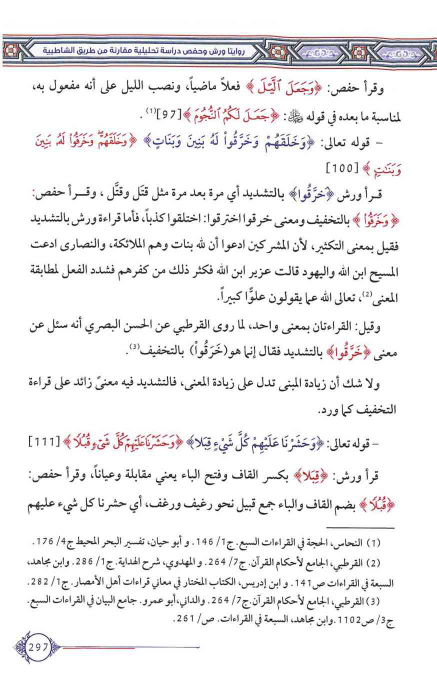 روايتا ورش وحفص دراسة تحليلية مقارنة من طريق الشاطبية
وقرأ حفص: ﴿وَجَعَلَ ٱلَّيْلَ﴾ فعلاً ماضياً، ونصب الليل على أنه مفعول به،
لمناسبة ما بعده في قوله ﷺ: ﴿جَعَلَ لَكُمُ ٱلنُّجُومَ﴾[97](1).
- قوله تعالى: ﴿وَخَلَقَهُمْ وَخَرَّقُواْ لَهُ بَنِينَ وَبَنَاتٍ﴾ ﴿وَخَلَقَهُمْ وَخَرَقُواْ لَهُۥ بَنِينَ
وَبَنَٰتٍ﴾ [100]
قـرأ ورش ﴿خَرَّقُوا﴾ بالتشديد أي مرة بعد مرة مثل قتَل وقتَّل ، وقــرأ حفص:
﴿وَخَرَقُواْ﴾ بالتخفيف ومعنى خرقوا اخترقوا: اختلقوا كذباً، فأما قراءة ورش بالتشديد
فقيل بمعنى التكثير، لأن المشركين ادعوا أن لله بنات وهم الملائكة، والنصارى ادعت
المسيح ابن الله واليهود قالت عزير ابن الله فكثر ذلك من كفرهم فشدد الفعل لمطابقة
المعنى(2)، تعالى الله عما يقولون علوًّا كبيراً.
وقيل: القراءتان بمعنى واحد، لما روى القرطبي عن الحسن البصري أنه سئل عن
معنى ﴿خَرَّقُوا﴾ بالتشديد فقال إنما هو(خَرَقُواْ) بالتخفيف(3).
ولا شك أن زيادة المبنى تدل على زيادة المعنى، فالتشديد فيه معنىً زائد على قراءة
التخفيف كما ورد.
- قوله تعالى: ﴿وَحَشَرْنَا عَلَيْهِمْ كُلَّ شَيْءٍ قِبَلا﴾ ﴿وَحَشَرْنَا عَلَيْهِمْ كُلَّ شَىْءٍ قُبُلًا﴾ [111]
قرأ ورش: ﴿قِبَلا﴾ بكسر القاف وفتح الباء يعني مقابلة وعياناً، وقرأ حفص:
﴿قُبُلًا﴾ بضم القاف والباء جمع قبيل نحو رغيف ورغف، أي حشرنا كل شيء عليهم
(1) النحاس، الحجة في القراءات السبع. ج1/ 146. و أبو حيان، تفسير البحر المحيط ج4/ 176.
(2) القرطبي، الجامع لأحكام القرآن. ج7/ 264. و المهدوي، شرح الهداية. ج1/ 286. وابن مجاهد،
السبعة في القراءات ص141. و ابن إدريس، الكتاب المختار في معاني قراءات أهل الأمصار. ج1/ 282.
(3) القرطبي، الجامع لأحكام القرآن. ج7/ 264. والداني، أبو عمرو. جامع البيان في القراءات السبع.
ج3/ ص1102. وابن مجاهد، السبعة في القراءات. ص/ 261.
297